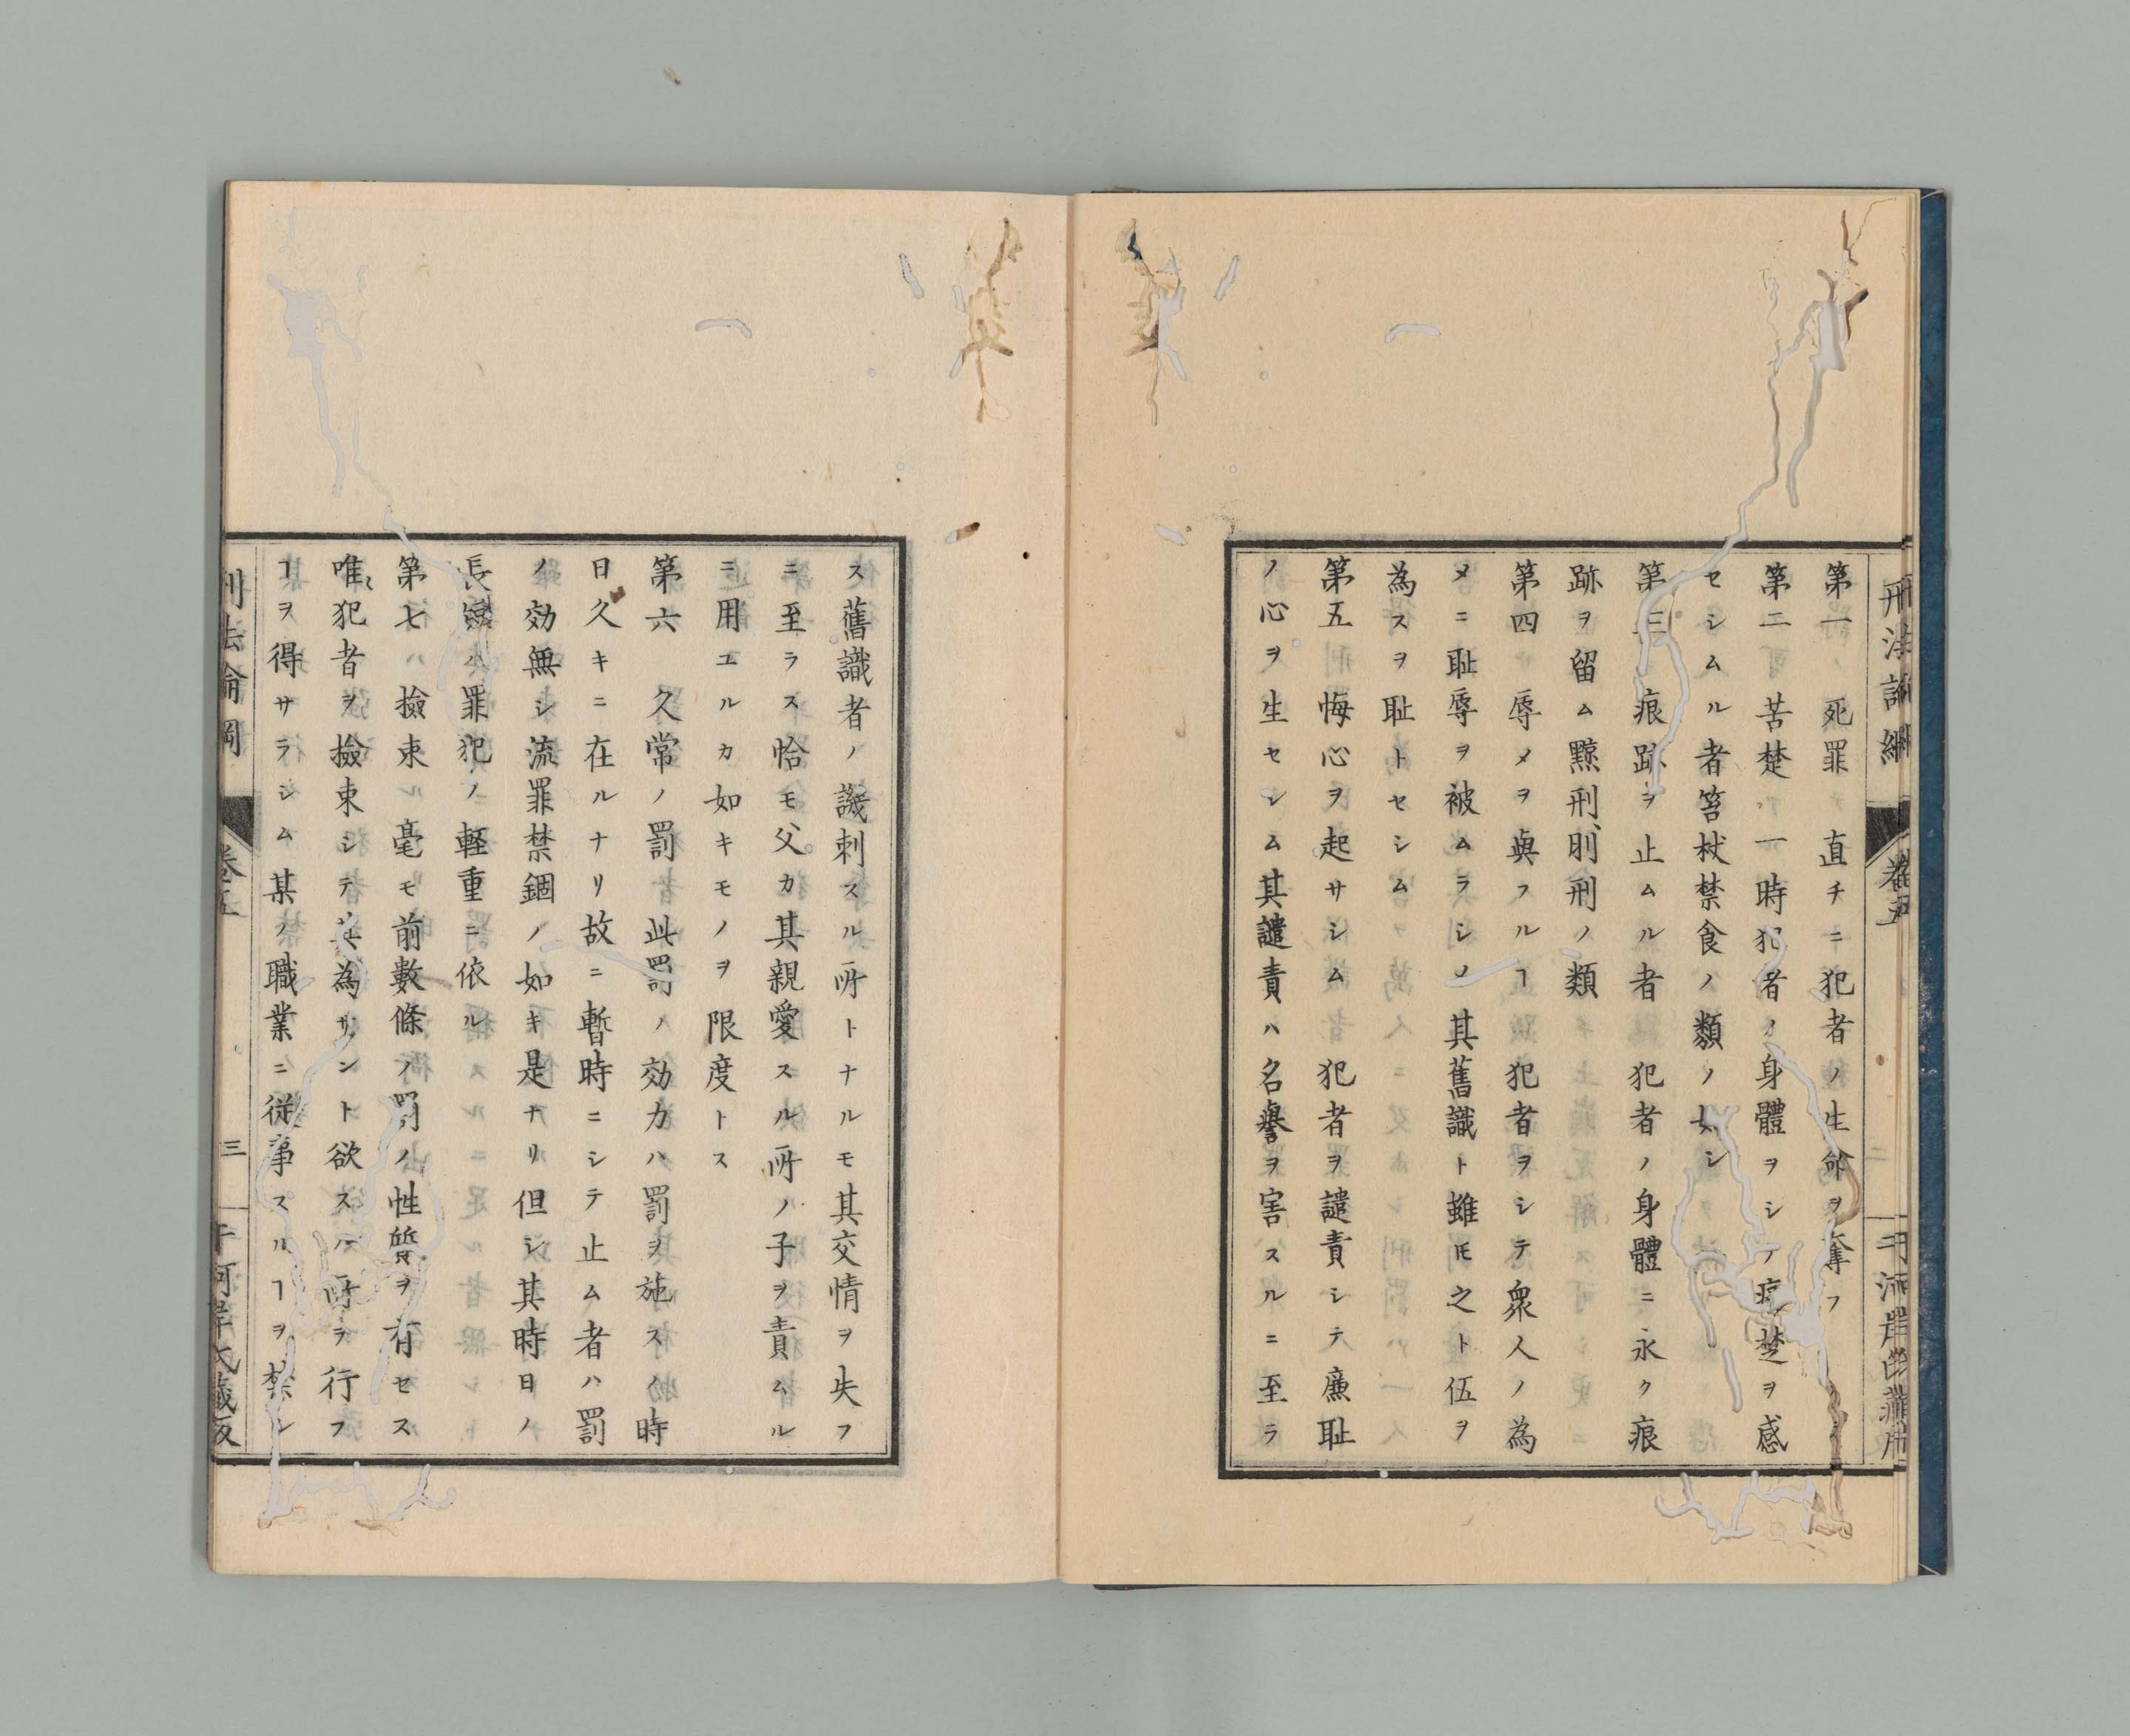 刑法論綱
卷五
第一　死罪　直チニ犯者ノ生命ヲ奪フ
第二　苦楚　一時犯者ノ身體ヲシテ痛楚ヲ感
セシムル者笞杖禁食ノ類ノ如シ
第三　痕跡ヲ止ムル者　犯者ノ身體ニ永ク痕
跡ヲ留ム黥刑刖刑ノ類
第四　辱メヲ與フルヿ　犯者ヲシテ衆人ノ為
メニ耻辱ヲ被ムラシメ其舊識ト雖𪜈之ト伍ヲ
為スヲ耻トセシム
第五　悔心ヲ起サシム　犯者ヲ譴責シテ廉耻
ノ心ヲ生セシム其譴責ハ名譽ヲ害スルニ至ラ
ス舊識者ノ譏刺スル所トナルモ其交情ヲ失フ
ニ至ラス恰モ父カ其親愛スル所ノ子ヲ責ムル
ニ用ユルカ如キモノヲ限度トス
第六　久常ノ罰　此罰ノ効力ハ罰ヲ施スノ時
日久キニ在ルナリ故ニ暫時ニシテ止ム者ハ罰
ノ効無シ流罪禁錮ノ如キ是ナリ但シ其時日ノ
長短ハ罪犯ノ輕重ニ依ル
第七　撿束　毫モ前數條ノ罰ノ性質ヲ有セス
唯犯者ヲ撿束シテ其為サント欲スル所ヲ行フ
ヿヲ得サラシム某ノ職業ニ従事スルヿヲ禁シ
刑法論綱
卷五
三
千河岸氏藏版